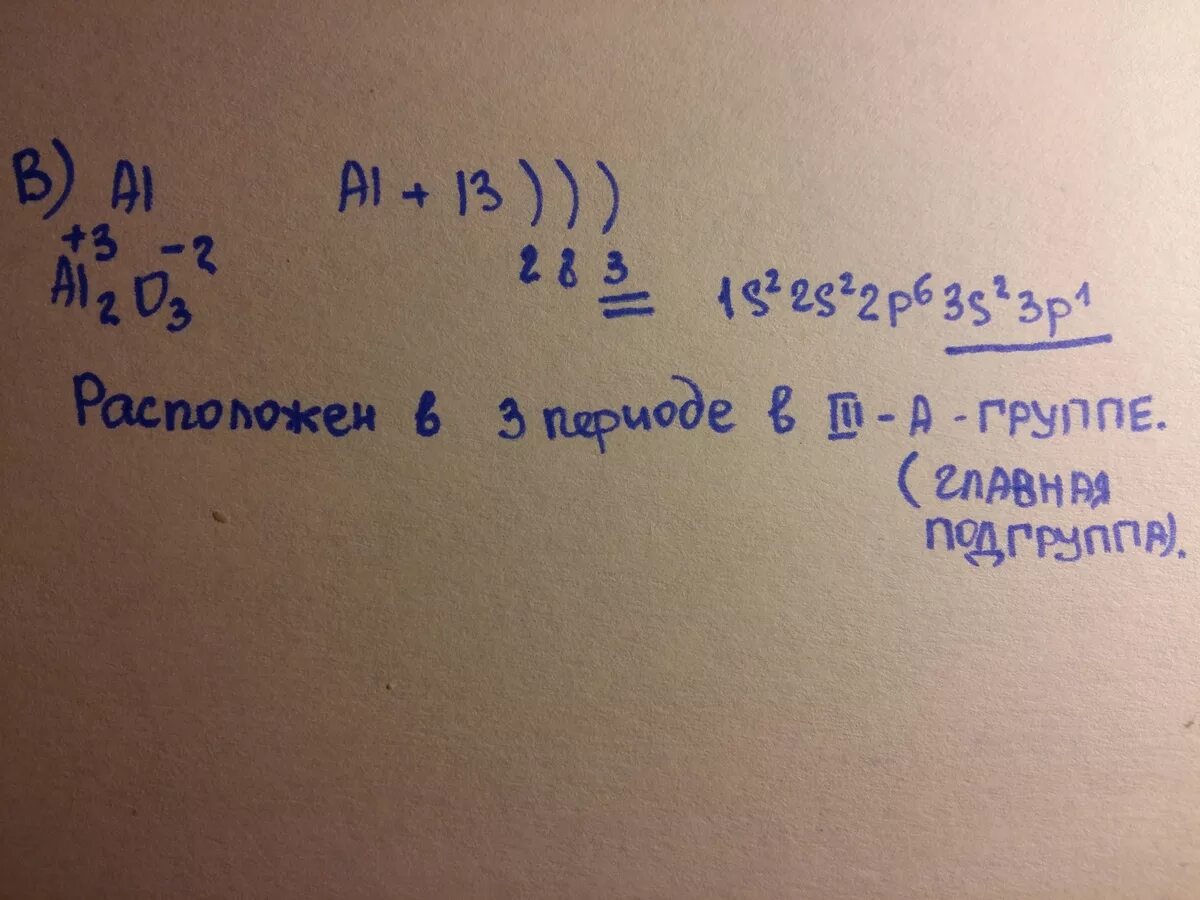 В) Al Al + 13 ) ) )
+3 -2
Al₂O₃ 2 8 3 1s²2s²2p⁶3s²3p¹
Расположен в 3 периоде в III-А-ГРУППЕ.
(ГЛАВНАЯ
ПОДГРУППА).